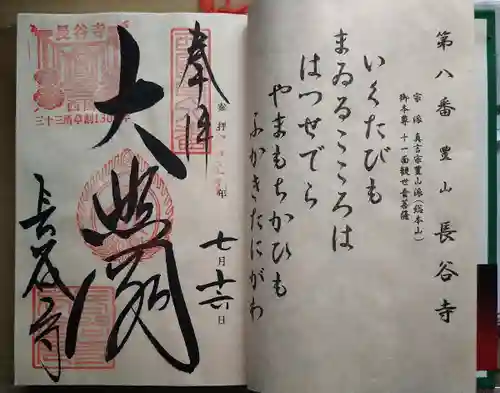 第八番 豊山 長谷寺
宗派 真言宗豊山派(総本山)
御本尊 十一面観世音菩薩
いくたびも
まゐるこころは
はつせでら
やまもちかひも
ふかきたにがわ
奉拝
年
七月十六日
大悲閣
長谷寺
長谷寺
西国
三十三所草創1300年